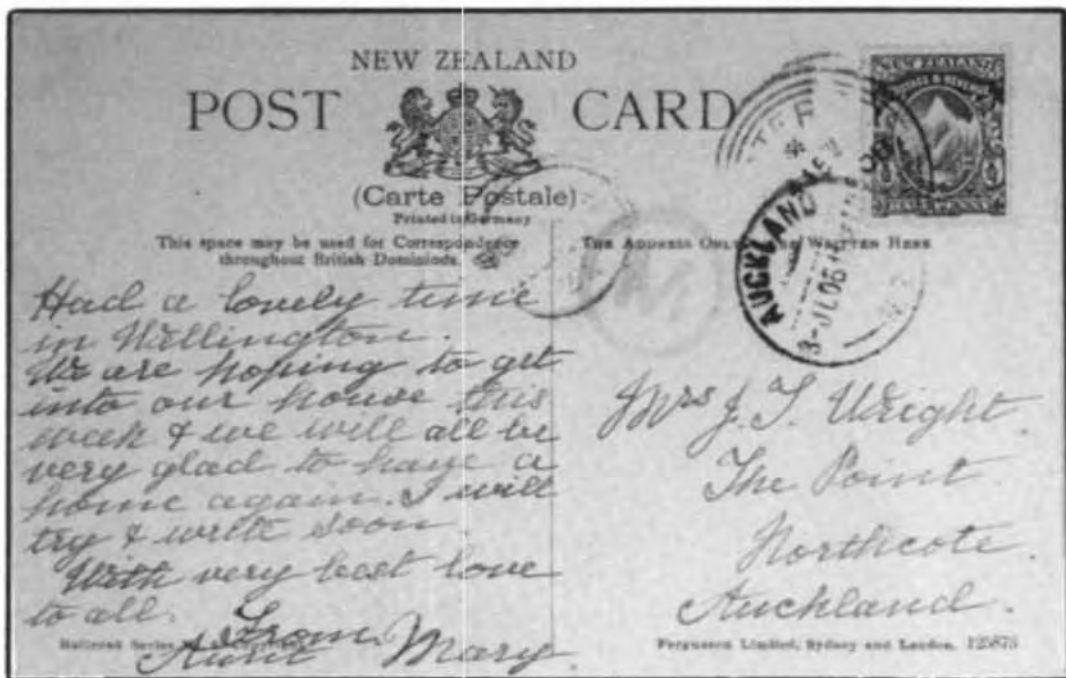 NEW ZEALAND
POST CARD
(Carte Postale)
Printed in Germany
This space may be used for Correspondence
throughout British Dominions.
THE ADDRESS ONLY WRITTEN HERE
NEW ZEALAND
POSTAGE & REVENUE
HALF PENNY
AUCKLAND
3-JL 06
Had a lovely time
in Wellington.
We are hoping to get
into our house this
week & we will all be
very glad to have a
home again. I will
try & write soon
With very best love
to all.
From
Aunt Mary
Mrs J. T. Wright.
The Point
Northcote.
Auckland.
Railroad Series
Fergusson Limited, Sydney and London. 125875